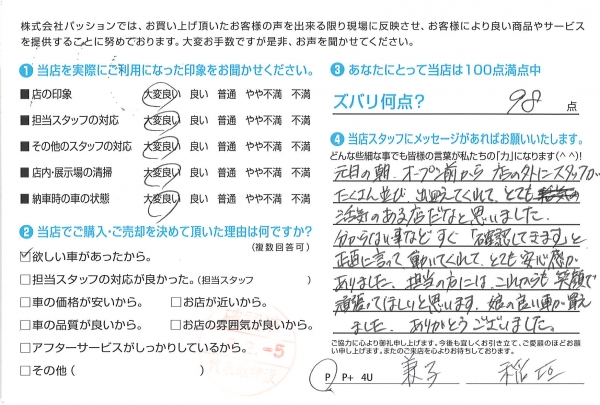 株式会社パッションでは、お買い上げ頂いたお客様の声を出来る限り現場に反映させ、お客様により良い商品やサービス
を提供することに努めております。大変お手数ですが是非、お声を聞かせてください。
① 当店を実際にご利用になった印象をお聞かせください。
■店の印象 大変良い 良い 普通 やや不満 不満
■担当スタッフの対応 大変良い 良い 普通 やや不満 不満
■その他のスタッフの対応 大変良い 良い 普通 やや不満 不満
■店内・展示場の清掃 大変良い 良い 普通 やや不満 不満
■納車時の車の状態 大変良い 良い 普通 やや不満 不満
② 当店でご購入・ご売却を決めて頂いた理由は何ですか?
(複数回答可)
☑欲しい車があったから。
□担当スタッフの対応が良かった。(担当スタッフ )
□車の価格が安いから。 □お店が近いから。
□車の品質が良いから。 □お店の雰囲気が良いから。
□アフターサービスがしっかりしているから。
□その他( )
-5
③ あなたにとって当店は100点満点中
ズバリ何点? 98 点
④ 当店スタッフにメッセージがあればお願いいたします。
どんな些細な事でも皆様の言葉が私たちの「力」になります(^^)!
元旦の朝、オープン前から店の外にスタッフが
たくさん並び、出迎えてくれて、とても
活気のある店だなと思いました。
分からない事など すぐ「確認してきます」と
正直に言って動いてくれて、とても安心感が
ありました。担当の店には、これからも笑顔で
頑張ってほしいと思います。娘の良い車が買え
ました。ありがとうございました。
ご協力に心より御礼申し上げます。今後も宜しくお引き立て、ご愛顧のほどお願
い申し上げます。またのご来店を心よりお待ちしております。
P P+ 4U